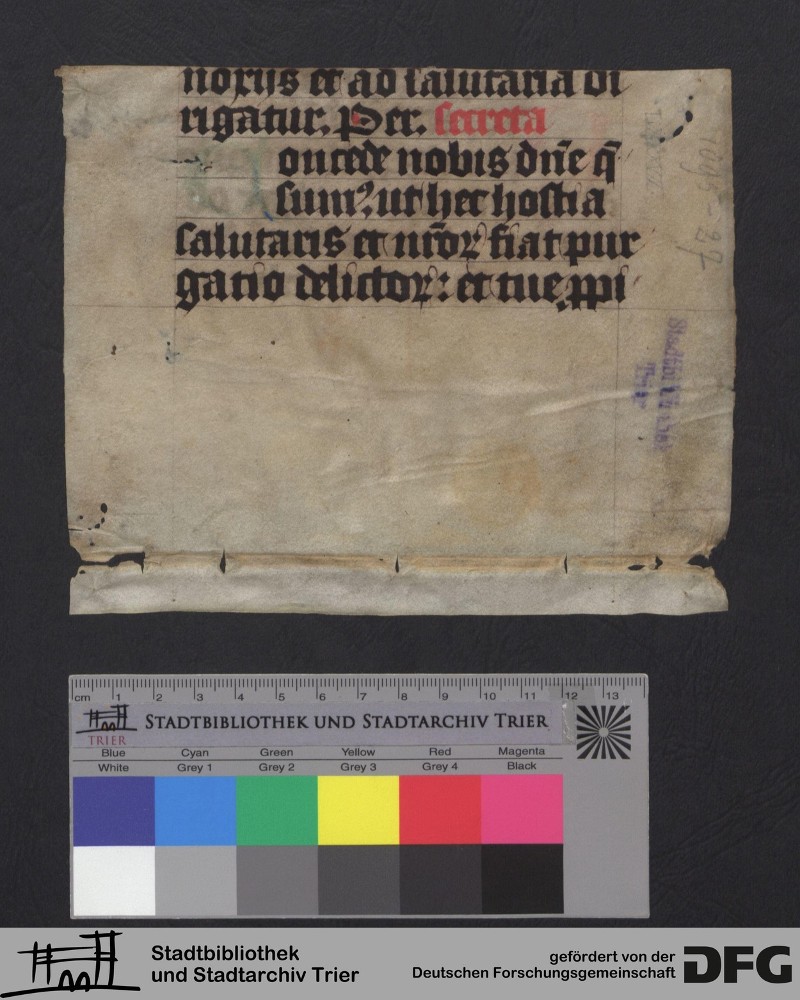 noxijs et ad salutaria di
rigatur. Per. secreta
oncede nobis dn̄e q̄
sum⁹ ut hec hostia
salutaris et nr̄oꝝ fiat pur
gatio delictoꝝ: et tue ꝓpi
Stadtbibliothek
Trier
cm 1 2 3 4 5 6 7 8 9 10 11 12 13
STADTBIBLIOTHEK UND STADTARCHIV TRIER
TRIER
Blue Cyan Green Yellow Red Magenta
White Grey 1 Grey 2 Grey 3 Grey 4 Black
Stadtbibliothek
und Stadtarchiv Trier
gefördert von der
Deutschen Forschungsgemeinschaft
DFG